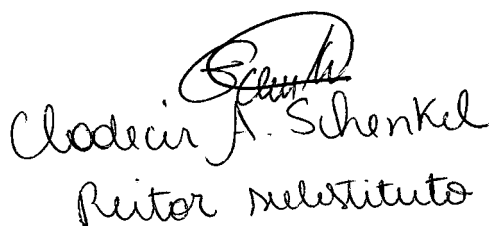 Clodecir A. Schenkel
Reitor substituto